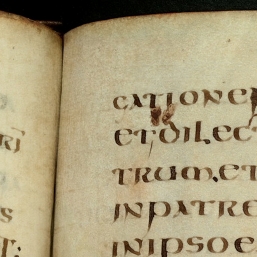 RI
S
T:
CATIONE
ETDILEC
TRUM,ET
INPATRE
INIPSOE